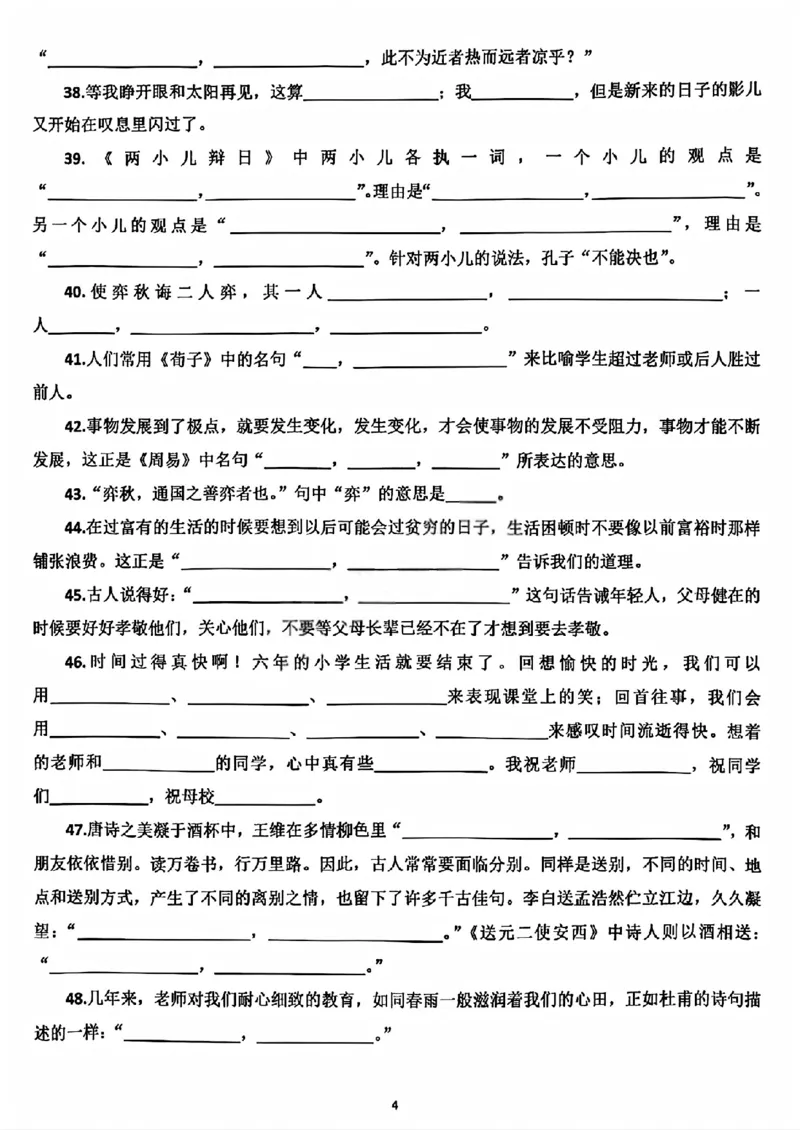 “______________，______________，此不为近者热而远者凉乎？”
38.等我睁开眼和太阳再见，这算______________；我__________，但是新来的日子的影儿
又开始在叹息里闪过了。
39.《两小儿辩日》中两小儿各执一词，一个小儿的观点是
“______________，______________”。理由是“______________，______________”。
另一个小儿的观点是“____________________，____________________”，理由是
“______________，______________”。针对两小儿的说法，孔子“不能决也”。
40.使弈秋诲二人弈，其一人______________，____________________；一
人______，________________，______________。
41.人们常用《荀子》中的名句“___，______________”来比喻学生超过老师或后人胜过
前人。
42.事物发展到了极点，就要发生变化，发生变化，才会使事物的发展不受阻力，事物才能不断
发展，这正是《周易》中名句“______，______，______”所表达的意思。
43.“弈秋，通国之善弈者也。”句中“弈”的意思是_____。
44.在过富有的生活的时候要想到以后可能会过贫穷的日子，生活困顿时不要像以前富裕时那样
铺张浪费。这正是“______________，______________”告诉我们的道理。
45.古人说得好：“______________，______________”这句话告诫年轻人，父母健在的
时候要好好孝敬他们，关心他们，不要等父母长辈已经不在了才想到要去孝敬。
46.时间过得真快啊！六年的小学生活就要结束了。回想愉快的时光，我们可以
用___________、___________、___________来表现课堂上的笑；回首往事，我们会
用__________、__________、__________、__________来感叹时间流逝得快。想着
的老师和__________的同学，心中真有些__________。我祝老师__________，祝同学
们_________，祝母校_________。
47.唐诗之美凝于酒杯中，王维在多情柳色里“______________，______________”，和
朋友依依惜别。读万卷书，行万里路。因此，古人常常要面临分别。同样是送别，不同的时间、地
点和送别方式，产生了不同的离别之情，也留下了许多千古佳句。李白送孟浩然伫立江边，久久凝
望：“________________，________________。”《送元二使安西》中诗人则以酒相送：
“______________，______________。”
48.几年来，老师对我们耐心细致的教育，如同春雨一般滋润着我们的心田，正如杜甫的诗句描
述的一样：“___________，___________。”
4